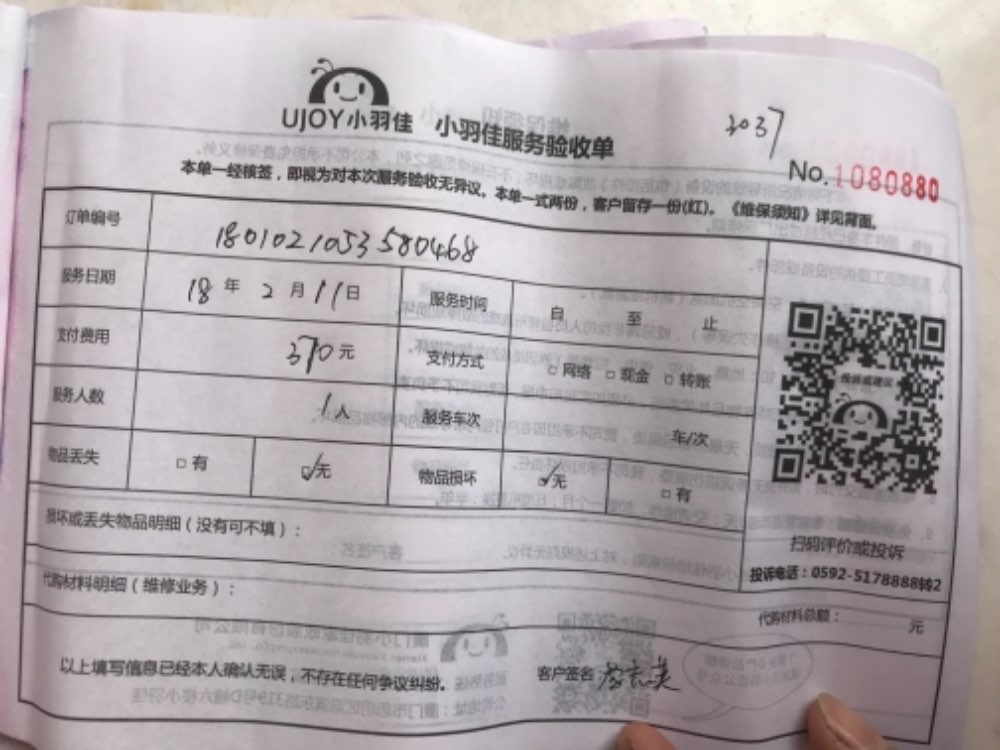 UJOY小羽佳 小羽佳服务验收单
2037
No.1080880
本单一经核签，即视为对本次服务验收无异议。本单一式两份，客户留存一份(红)。《维保须知》详见背面。
订单编号 1801021053580468
服务日期 18年2月11日 服务时间 自 至 止
支付费用 370元 支付方式 □网络 □现金 □转账
服务人数 1人 服务车次 车/次
物品丢失 □有 ☑无 物品损坏 ☑无 □有
损坏或丢失物品明细（没有可不填）：
扫码评价或投诉
投诉电话：0592-5178888转2
代购材料明细（维修业务）：
代购材料总额： 元
以上填写信息已经本人确认无误，不存在任何争议纠纷。 客户签名：